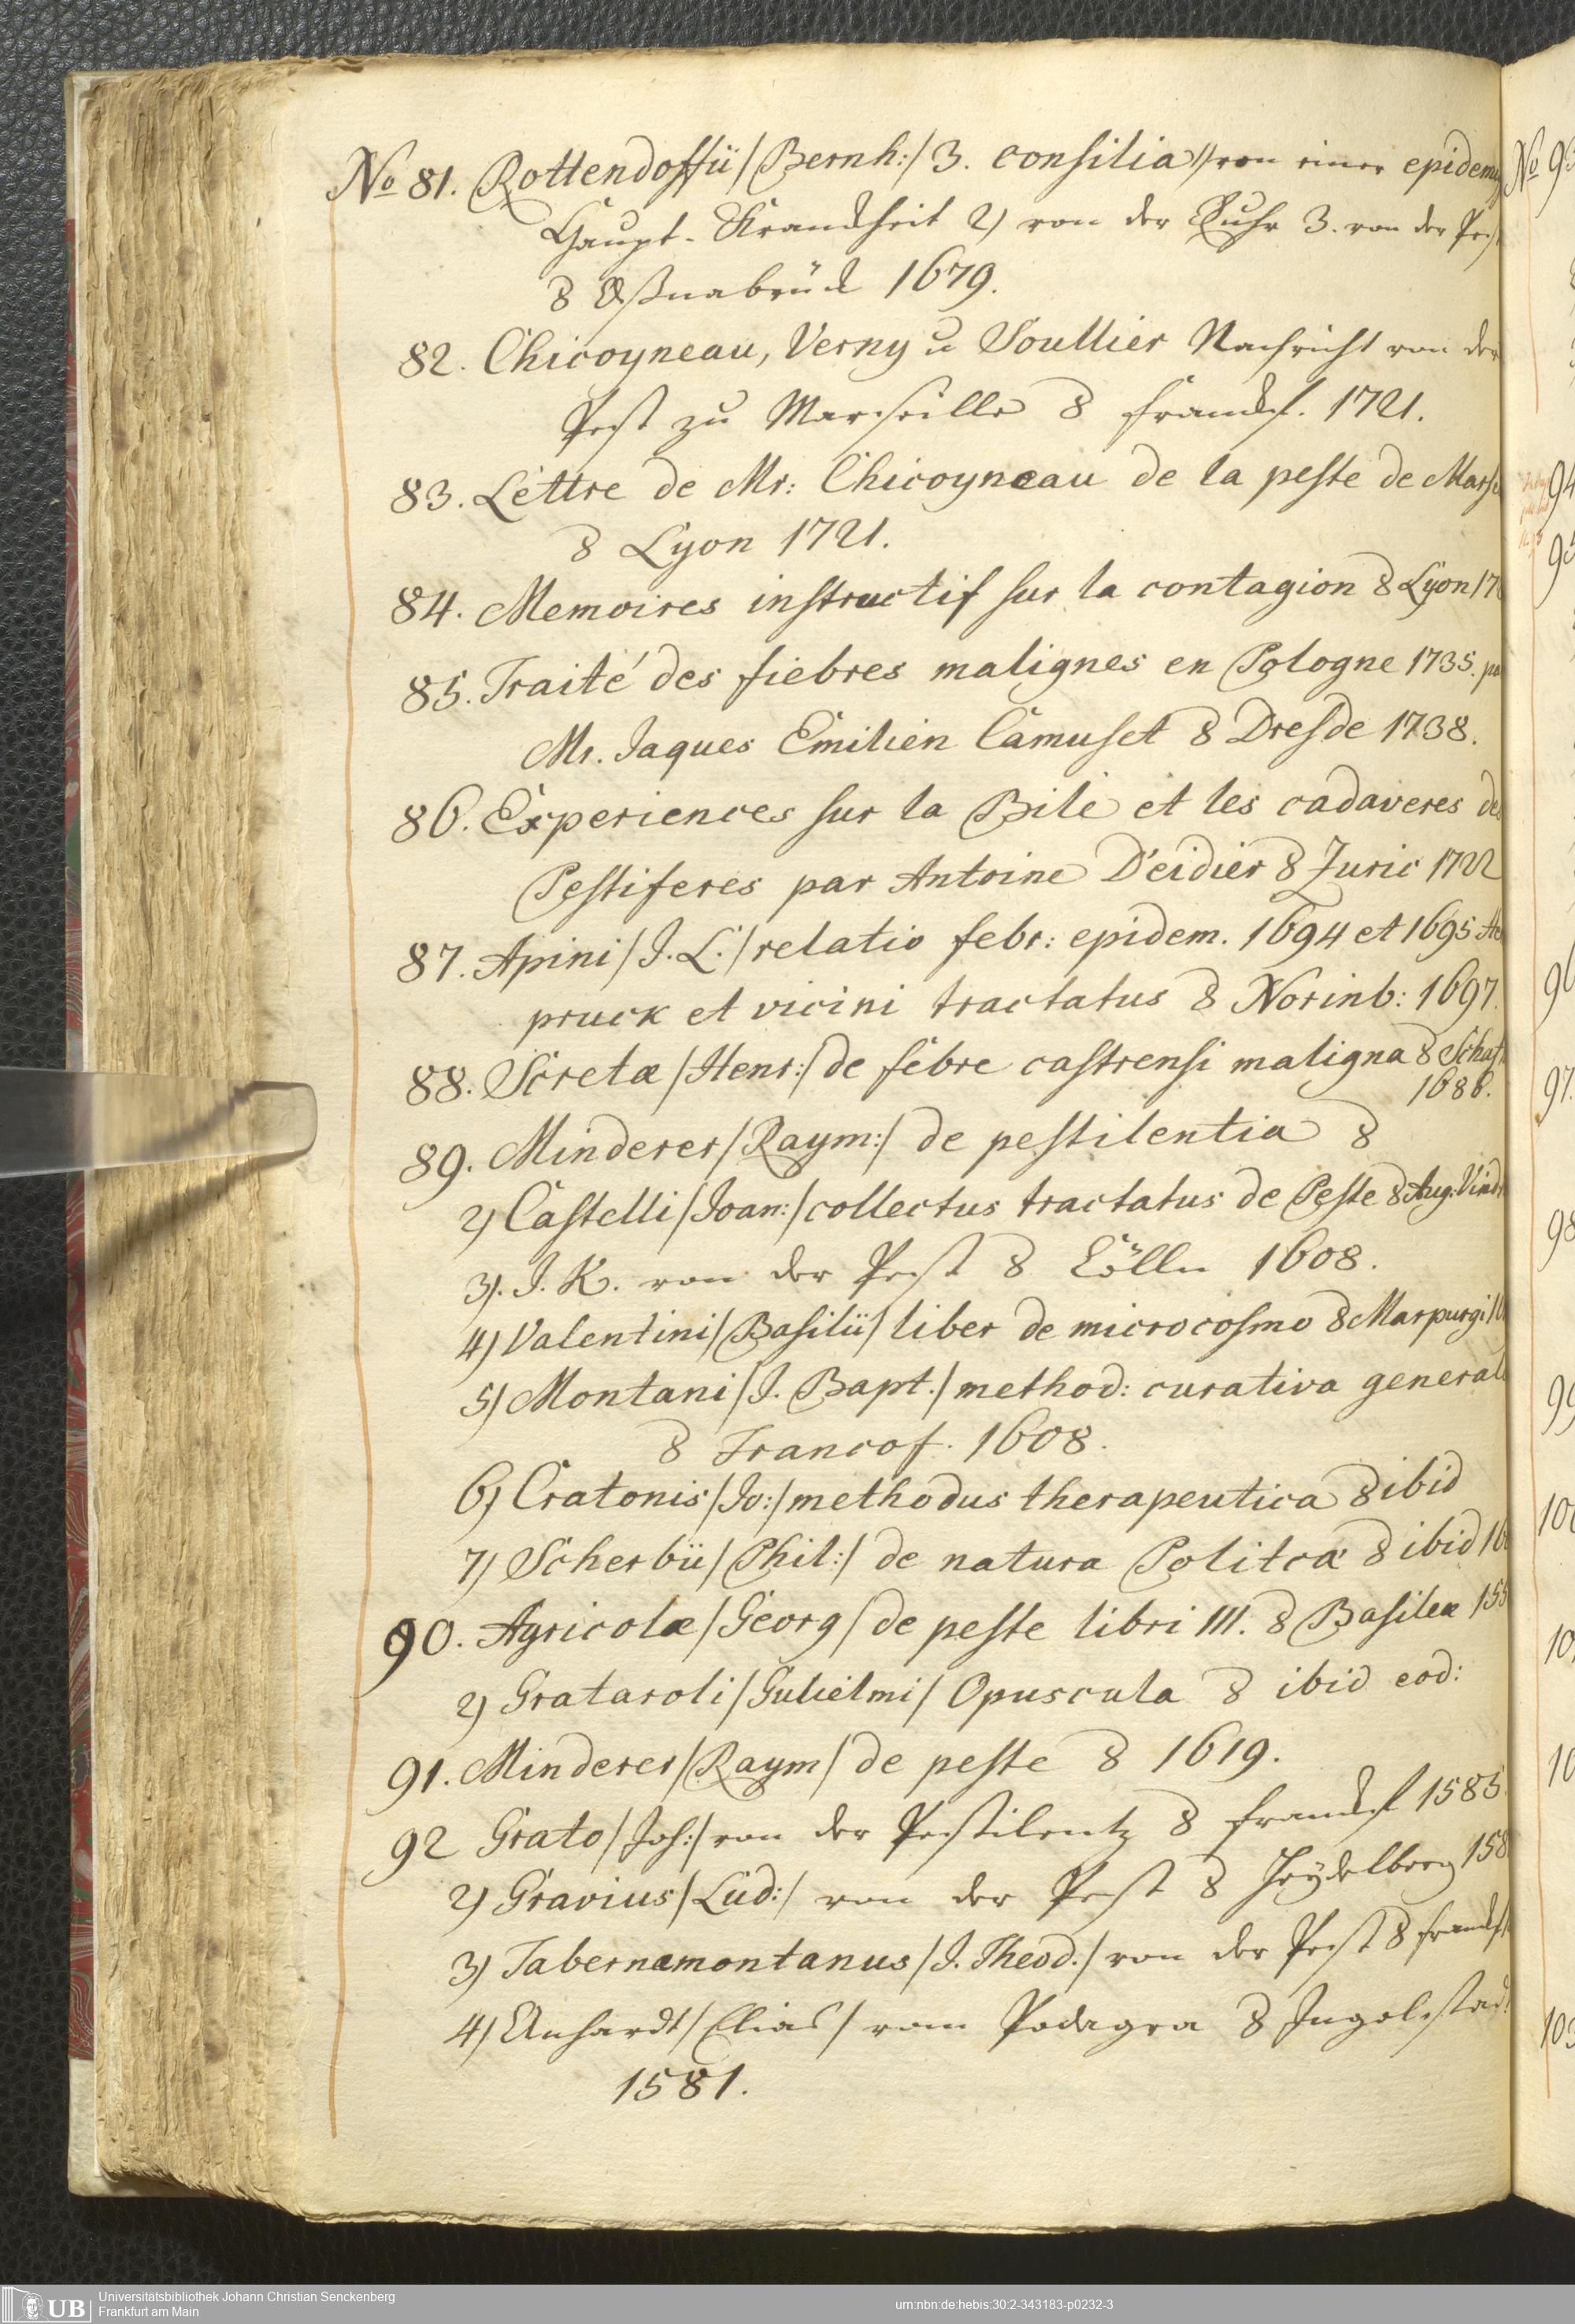 No 81. Rottendoffii /Bernh:/ 3. consilia 1) von einer epidem
Haupt-Krankheit 2) von der Ruhr 3. von der Pest
8 Oßnabrück 1679.
82. Chicoyneau, Verny u Soullier Nachricht von der
Pest zu Marseille 8 Franckf. 1721.
83. Lettre de Mr: Chicoyneau de la peste de Marse
8 Lyon 1721.
84. Memoires instructif sur la contagion 8 Lyon 17
85. Traité des fiebres malignes en Pologne 1735. pa
Mr. Jaques Emilien Camuset 8 Dresde 1738.
86. Experiences sur la Bile et les cadaveres de
Pestiferes par Antoine D'eidier 8 Zuric 1722
87. Apini /J. L./ relatio febr: epidem. 1694 et 1695 He
pruck et vicini tractatus 8 Norinb: 1697.
88. Scretæ /Henr:/ de febre castrensi maligna 8 Schaf
1686.
89. Minderer /Raym:/ de pestilentia 8
2) Castelli /Joan:/ collectus tractatus de Peste 8 Aug: Vind
3). J. K. von der Pest 8 Cölln 1608.
4) Valentini /Basilii/ liber de microcosmo 8 Marpurgi 16
5) Montani /J. Bapt./ method: curativa general
8 Francof. 1608.
6) Cratonis /Jo:/ methodus therapeutica 8 ibid
7) Scherbii /Phil:/ de natura Politcæ 8 ibid 16
90. Agricolæ /Georg/ de peste libri III. 8 Basileæ 155
2) Grataroli /Gulielmi/ Opuscula 8 ibid eod:
91. Minderer /Raym/ de peste 8 1619.
92 Grato /Joh:/ von der Pestilentz 8 Franckf 1585
2) Gravius /Lud:/ von der Pest 8 Heydelberg 158
3) Tabernæmontanus /J. Theod./ von der Pest 8 Franckf
4) Anhardt /Elias/ vom Podagra 8 Ingolstad
1581.
No 93
94
95
96
97.
98
99
100
10
10
103
Universitätsbibliothek Johann Christian Senckenberg
Frankfurt am Main
UB
urn:nbn:de:hebis:30:2-343183-p0232-3